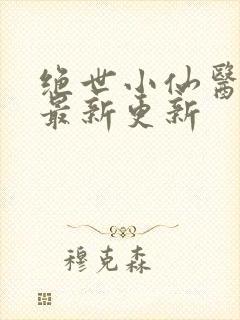 绝世小仙醫
最新更新
穆克森